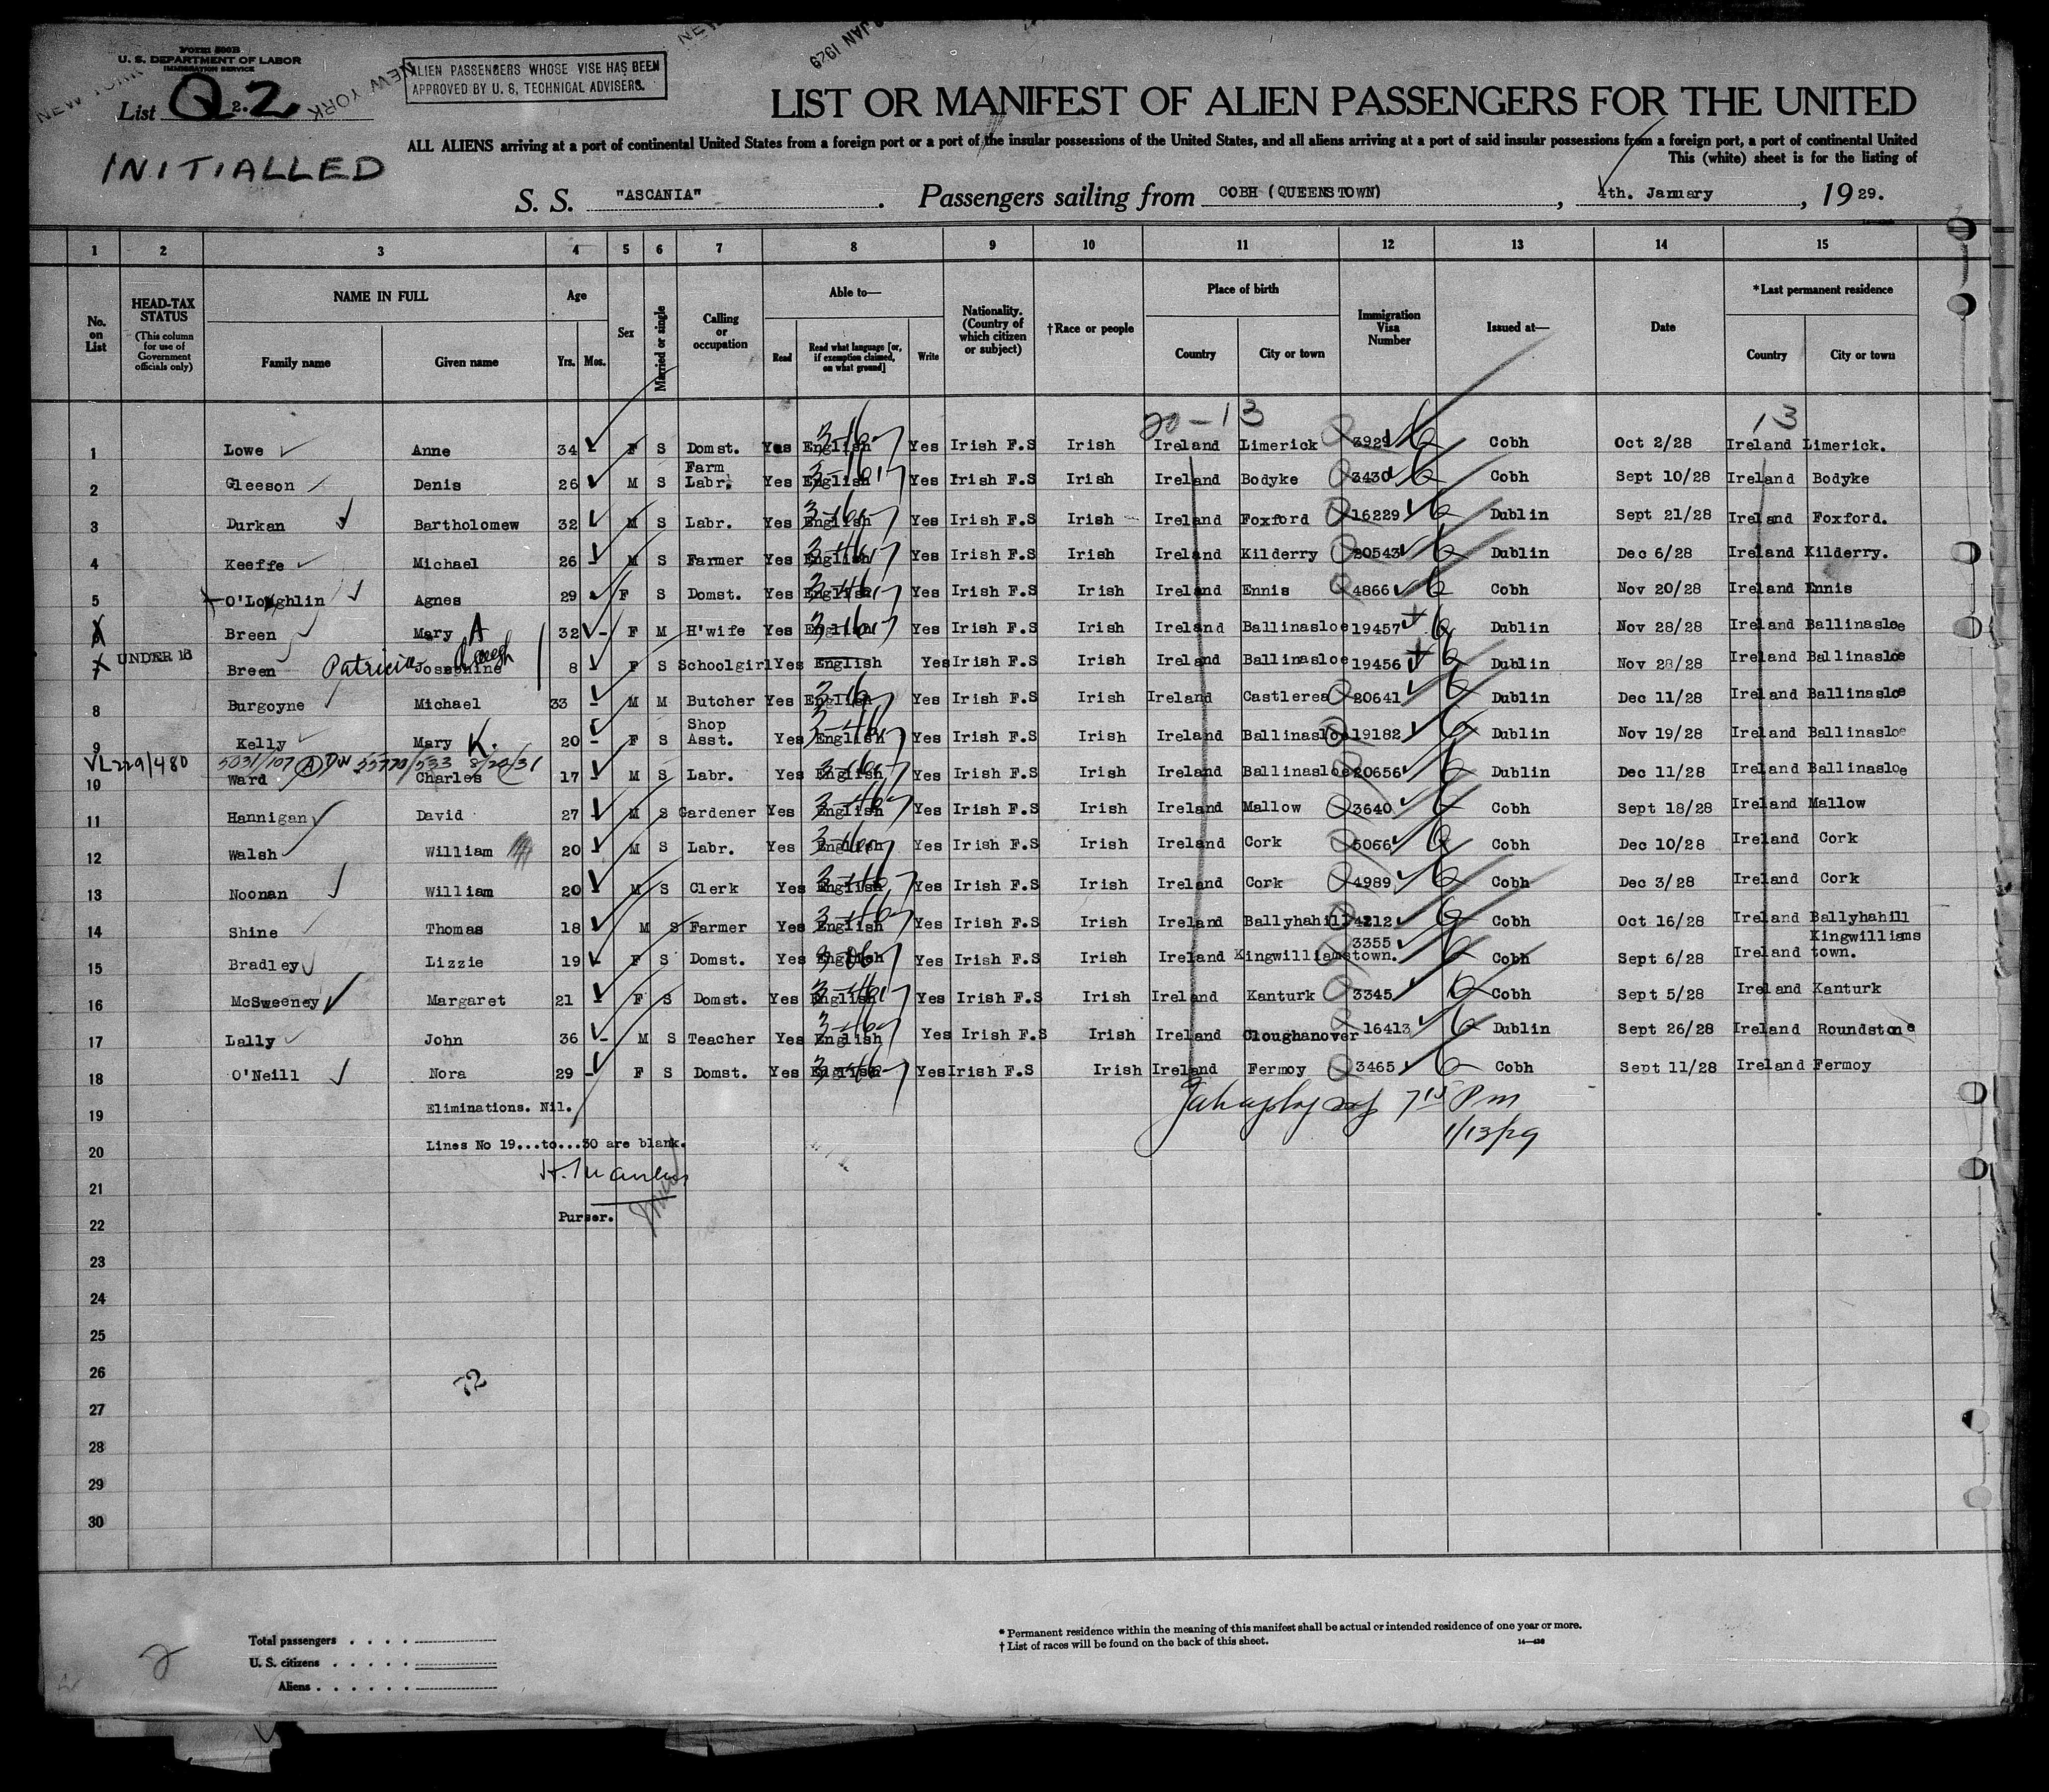 Form 500B
U. S. DEPARTMENT OF LABOR
IMMIGRATION SERVICE
NEW YORK
NEW YORK
JAN 1929
ALIEN PASSENGERS WHOSE VISE HAS BEEN
APPROVED BY U. S. TECHNICAL ADVISERS.
List Q 2. 2
INITIALLED
LIST OR MANIFEST OF ALIEN PASSENGERS FOR THE UNITED
ALL ALIENS arriving at a port of continental United States from a foreign port or a port of the insular possessions of the United States, and all aliens arriving at a port of said insular possessions from a foreign port, a port of continental United
This (white) sheet is for the listing of
S. S. "ASCANIA". Passengers sailing from COBH (QUEENSTOWN), 4th. January, 1929.
1 2 3 4 5 6 7 8 9 10 11 12 13 14 15
No. on List
HEAD-TAX STATUS
(This column for use of Government officials only)
NAME IN FULL
Family name Given name
Age
Yrs. Mos.
Sex
Married or single
Calling or occupation
Able to—
Read
Read what language [or, if exemption claimed, on what ground]
Write
Nationality. (Country of which citizen or subject)
†Race or people
Place of birth
Country City or town
Immigration Visa Number
Issued at—
Date
*Last permanent residence
Country City or town
20-13 13
1 Lowe Anne 34 F S Domst. Yes English Yes Irish F.S Irish Ireland Limerick 3929 Cobh Oct 2/28 Ireland Limerick.
2 Gleeson Denis 26 M S Farm Labr. Yes English Yes Irish F.S Irish Ireland Bodyke 3430 Cobh Sept 10/28 Ireland Bodyke
3 Durkan Bartholomew 32 M S Labr. Yes English Yes Irish F.S Irish Ireland Foxford 16229 Dublin Sept 21/28 Ireland Foxford.
4 Keeffe Michael 26 M S Farmer Yes English Yes Irish F.S Irish Ireland Kilderry 20543 Dublin Dec 6/28 Ireland Kilderry.
5 O'Loughlin Agnes 29 F S Domst. Yes English Yes Irish F.S Irish Ireland Ennis 4866 Cobh Nov 20/28 Ireland Ennis
6 Breen Mary A 32 - F M H'wife Yes English Yes Irish F.S Irish Ireland Ballinasloe 19457 Dublin Nov 28/28 Ireland Ballinasloe
UNDER 16 Breen Patricia Josephine 8 F S Schoolgirl Yes English Yes Irish F.S Irish Ireland Ballinasloe 19456 Dublin Nov 28/28 Ireland Ballinasloe
8 Burgoyne Michael 33 - M M Butcher Yes English Yes Irish F.S Irish Ireland Castlerea 20641 Dublin Dec 11/28 Ireland Ballinasloe
9 Kelly Mary K. 20 - F S Shop Asst. Yes English Yes Irish F.S Irish Ireland Ballinasloe 19182 Dublin Nov 19/28 Ireland Ballinasloe
VL229/480 5031/107 (A) DW 55770/533 8/20/31
10 Ward Charles 17 M S Labr. Yes English Yes Irish F.S Irish Ireland Ballinasloe 20656 Dublin Dec 11/28 Ireland Ballinasloe
11 Hannigan David 27 M S Gardener Yes English Yes Irish F.S Irish Ireland Mallow 3640 Cobh Sept 18/28 Ireland Mallow
12 Walsh William 20 M S Labr. Yes English Yes Irish F.S Irish Ireland Cork 5066 Cobh Dec 10/28 Ireland Cork
13 Noonan William 20 M S Clerk Yes English Yes Irish F.S Irish Ireland Cork 4989 Cobh Dec 3/28 Ireland Cork
14 Shine Thomas 18 M S Farmer Yes English Yes Irish F.S Irish Ireland Ballyhahill 4212 Cobh Oct 16/28 Ireland Ballyhahill
15 Bradley Lizzie 19 F S Domst. Yes English Yes Irish F.S Irish Ireland Kingwilliamstown. 3355 Cobh Sept 6/28 Ireland Kingwilliams town.
16 McSweeney Margaret 21 - F S Domst. Yes English Yes Irish F.S Irish Ireland Kanturk 3345 Cobh Sept 5/28 Ireland Kanturk
17 Lally John 36 - M S Teacher Yes English Yes Irish F.S Irish Ireland Cloughanover 16413 Dublin Sept 26/28 Ireland Roundstone
18 O'Neill Nora 29 - F S Domst. Yes English Yes Irish F.S Irish Ireland Fermoy 3465 Cobh Sept 11/28 Ireland Fermoy
19 Eliminations. Nil. 7 15 Pm
1/13/29
20 Lines No 19...to...30 are blank.
21
22 Purser.
23
24
25
26
72
27
28
29
30
Total passengers
U. S. citizens
Aliens
2
* Permanent residence within the meaning of this manifest shall be actual or intended residence of one year or more.
† List of races will be found on the back of this sheet.